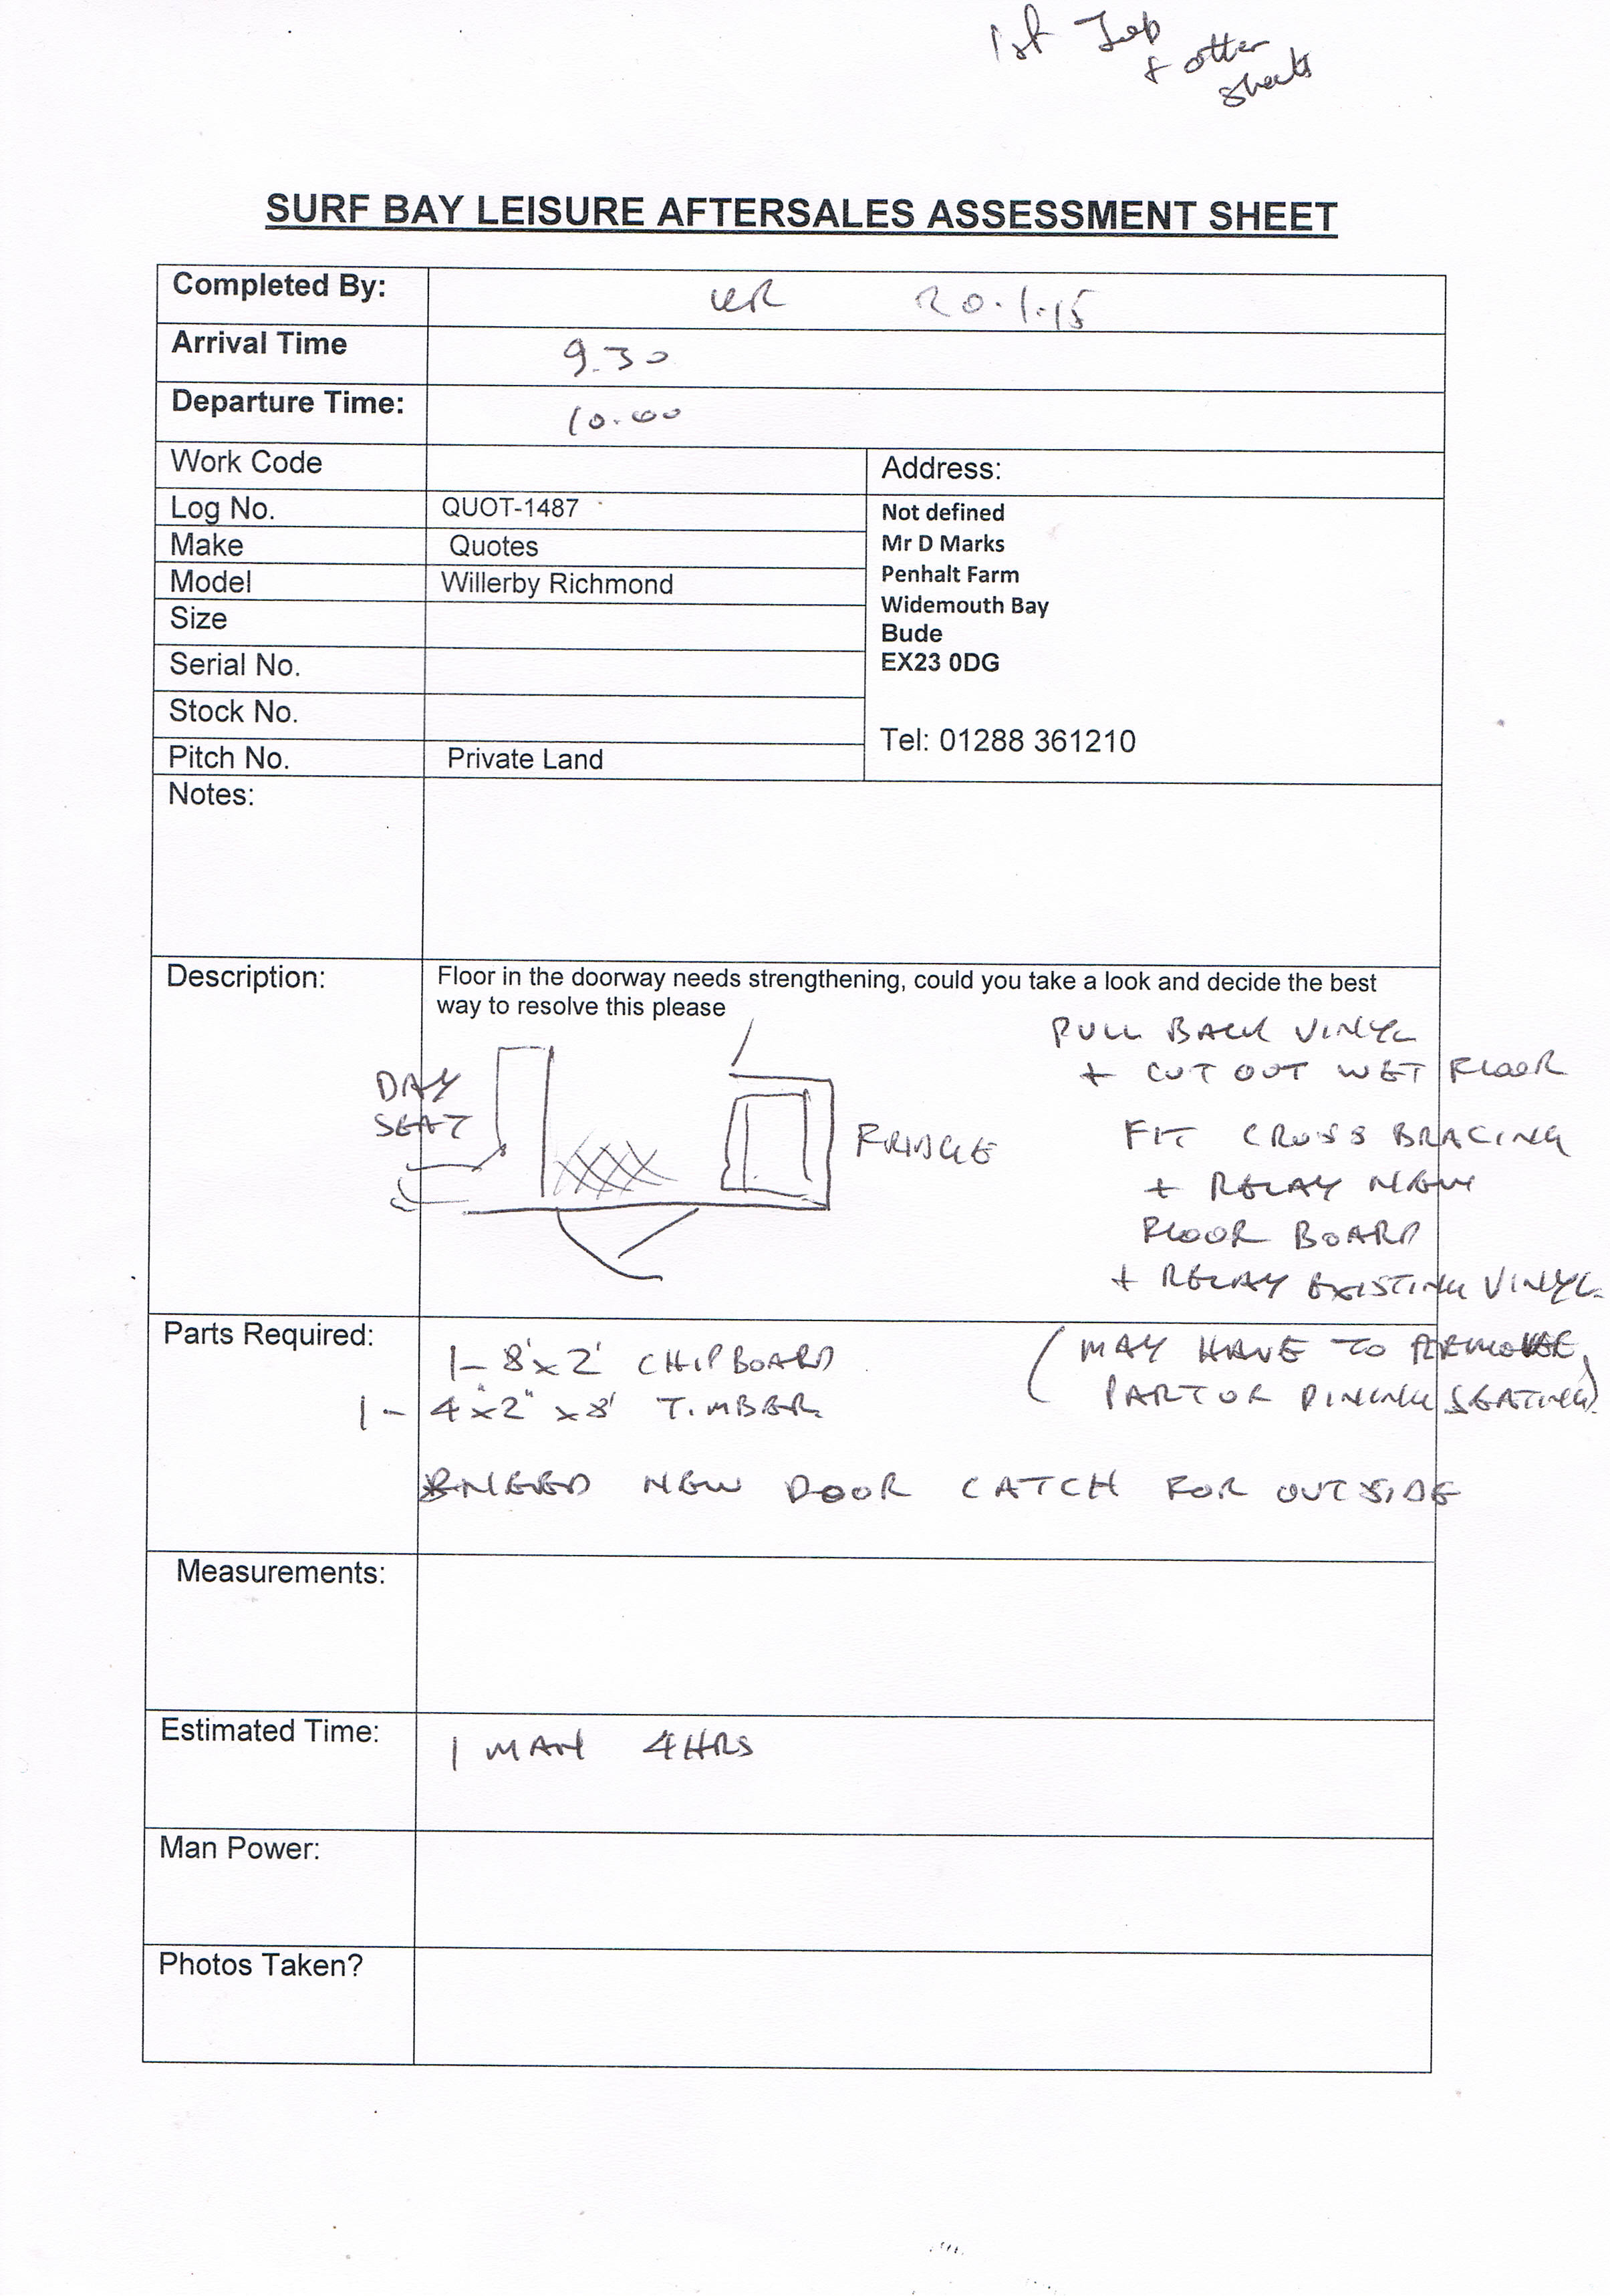 1st Job
& other
sheets
SURF BAY LEISURE AFTERSALES ASSESSMENT SHEET
Completed By: 20.1.15
Arrival Time 9.30
Departure Time: 10.00
Work Code
Address:
Log No. QUOT-1487
Make Quotes
Model Willerby Richmond
Size
Serial No.
Stock No.
Pitch No. Private Land
Not defined
Mr D Marks
Penhalt Farm
Widemouth Bay
Bude
EX23 0DG
Tel: 01288 361210
Notes:
Description: Floor in the doorway needs strengthening, could you take a look and decide the best
way to resolve this please
DAY
SEAT
FRIDGE
PULL BACK VINYL
+ CUT OUT WET FLOOR
FIT CROSS BRACING
+ RELAY NEW
FLOOR BOARD
+ RELAY EXISTING VINYL.
(MAY HAVE TO REMOVE
PART OR DINING SEATING)
Parts Required: 1 - 8'x2' CHIPBOARD
1 - 4"x2" x8' TIMBER
NEED NEW DOOR CATCH FOR OUTSIDE
Measurements:
Estimated Time: 1 MAN 4HRS
Man Power:
Photos Taken?